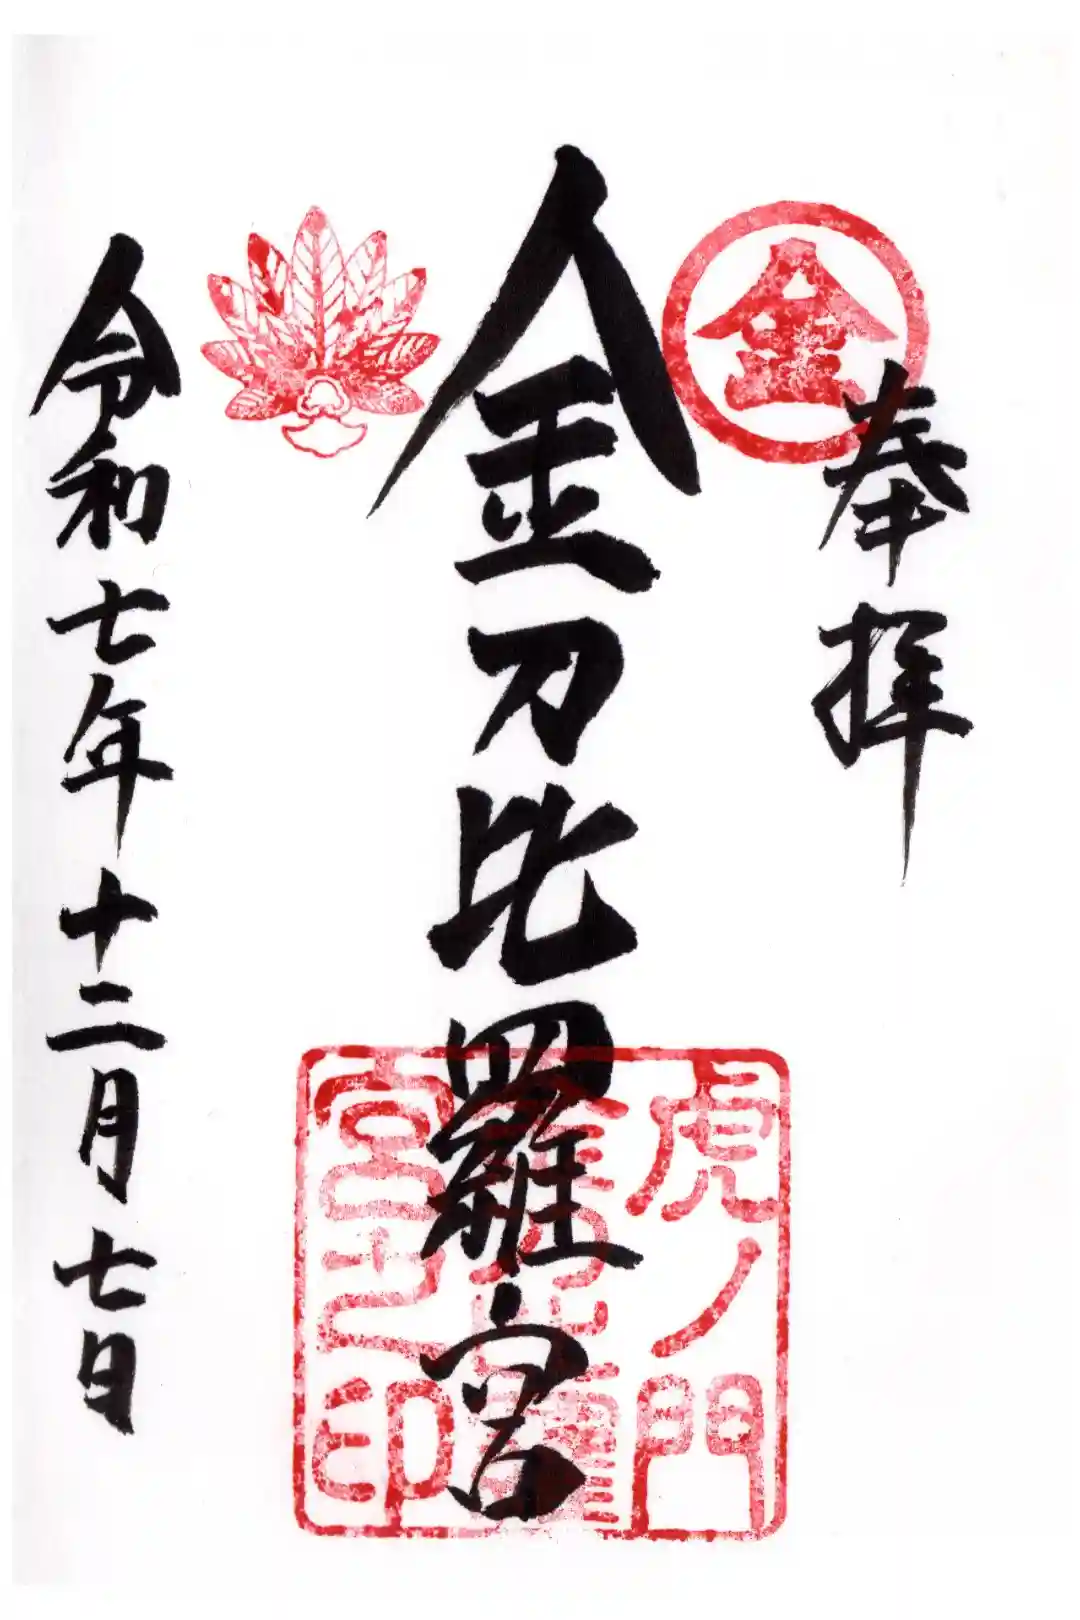 奉拝
金
金刀比羅宮
虎ノ門
金刀比羅
宮之印
令和七年十二月七日